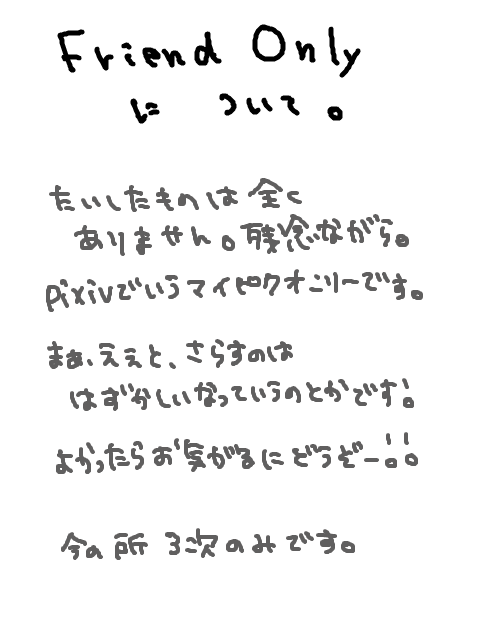 Friend Only
に ついて。
たいしたものは全く
ありません。残念ながら。
pixivでいうマイピクオンリーです。
まぁ、ええと、さらすのは
はずかしいなっていうのとかです!
よかったらお気がるにどうぞー!!
今の所 3次のみです。